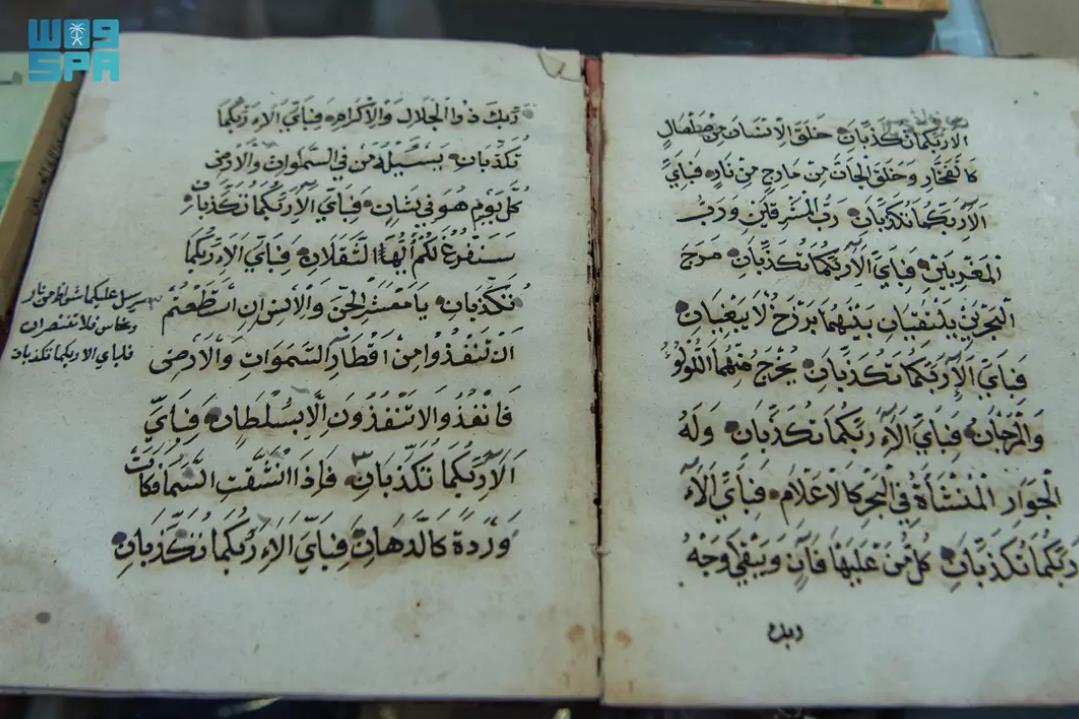 واس
SPA
الاء ربكما تكذبان خلق الانسان من صلصال
كالفخار وخلق الجان من مارج من نار فباي
الاء ربكما تكذبان رب المشرقين ورب
المغربين فباي الاء ربكما تكذبان مرج
البحرين يلتقيان بينهما برزخ لا يبغيان
فباي الاء ربكما تكذبان يخرج منهما اللولو
والمرجان فباي الاء ربكما تكذبان وله
الجوار المنشاة في البحر كالاعلام فباي الاء
ربكما تكذبان كل من عليها فان ويبقى وجه
ربك
ربك ذوالجلال والاكرام فباي الاء ربكما
تكذبان يسئله من في السموات والارض
كل يوم هو في شان فباي الاء ربكما تكذبان
سنفرغ لكم أيها الثقلان فباي الاء ربكما
تكذبان يا معشر الجن والانس ان استطعتم
ان تنفذوا من اقطار السموات والارض
فانفذوا لا تنفذون الا بسلطان فباي
الاء ربكما تكذبان فاذا انشقت السما فكانت
وردة كالدهان فباي الاء ربكما تكذبان
يرسل عليكما شواظ من نار
ونحاس فلا تنتصران
فباي الاء ربكما تكذبان